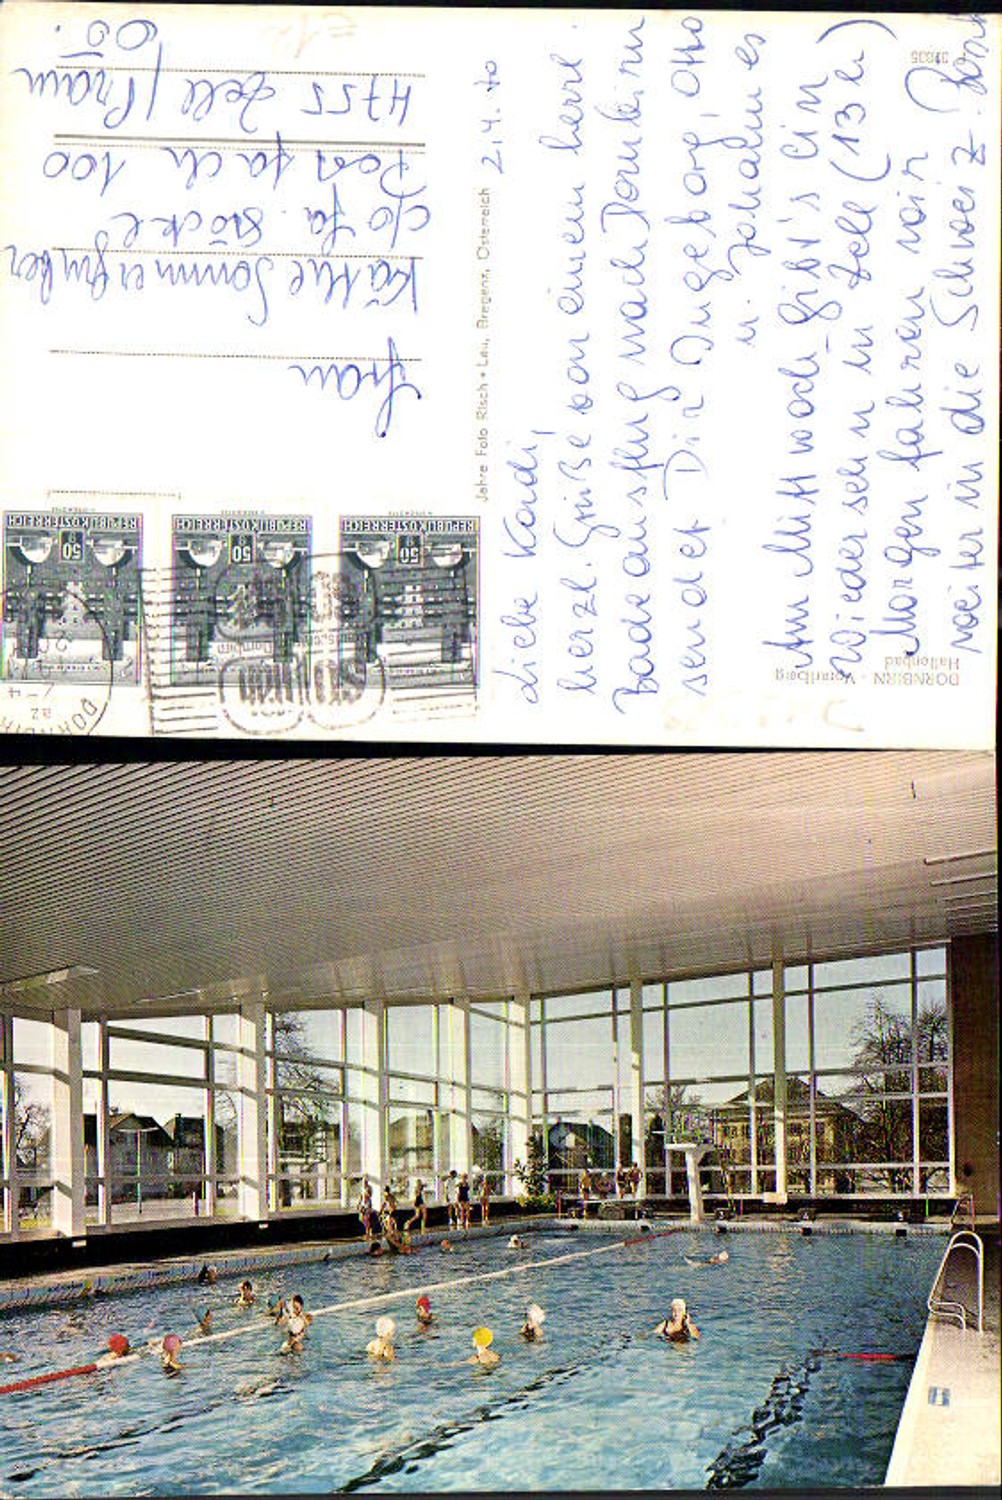 DORNBIRN - Vorarlberg
Hallenbad
2.4.70
Liebe Kardi,
herzl. Grüße von einem herrl.
Badeausflug nach Dornbirn
sendet Dir Ingeborg, Otto
u. Johannes
Am Mittwoch gibt's ein
Wiedersehn in Zell (13 h)
Morgen fahren wir
weiter in die Schweiz z.
Jahre Foto Risch • Lau, Bregenz, Österreich
REPUBLIK ÖSTERREICH
50 g
REPUBLIK ÖSTERREICH
50 g
REPUBLIK ÖSTERREICH
50 g
Frau
Käthe Sommergruber
c/o Fa. Stöckl
Postfach 100
4755 Zell / Pram
OÖ.